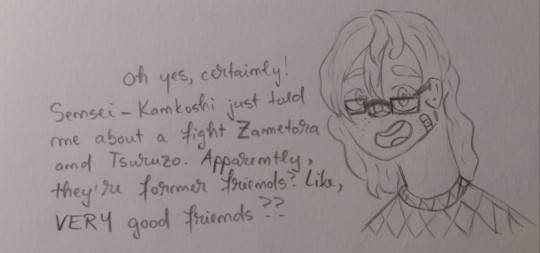 Oh yes, certainly!
Sensei-Kamkoshi just told
me about a fight Zametora
and Tsuruzo. Apparently,
they're former friends? Like,
VERY good friends??